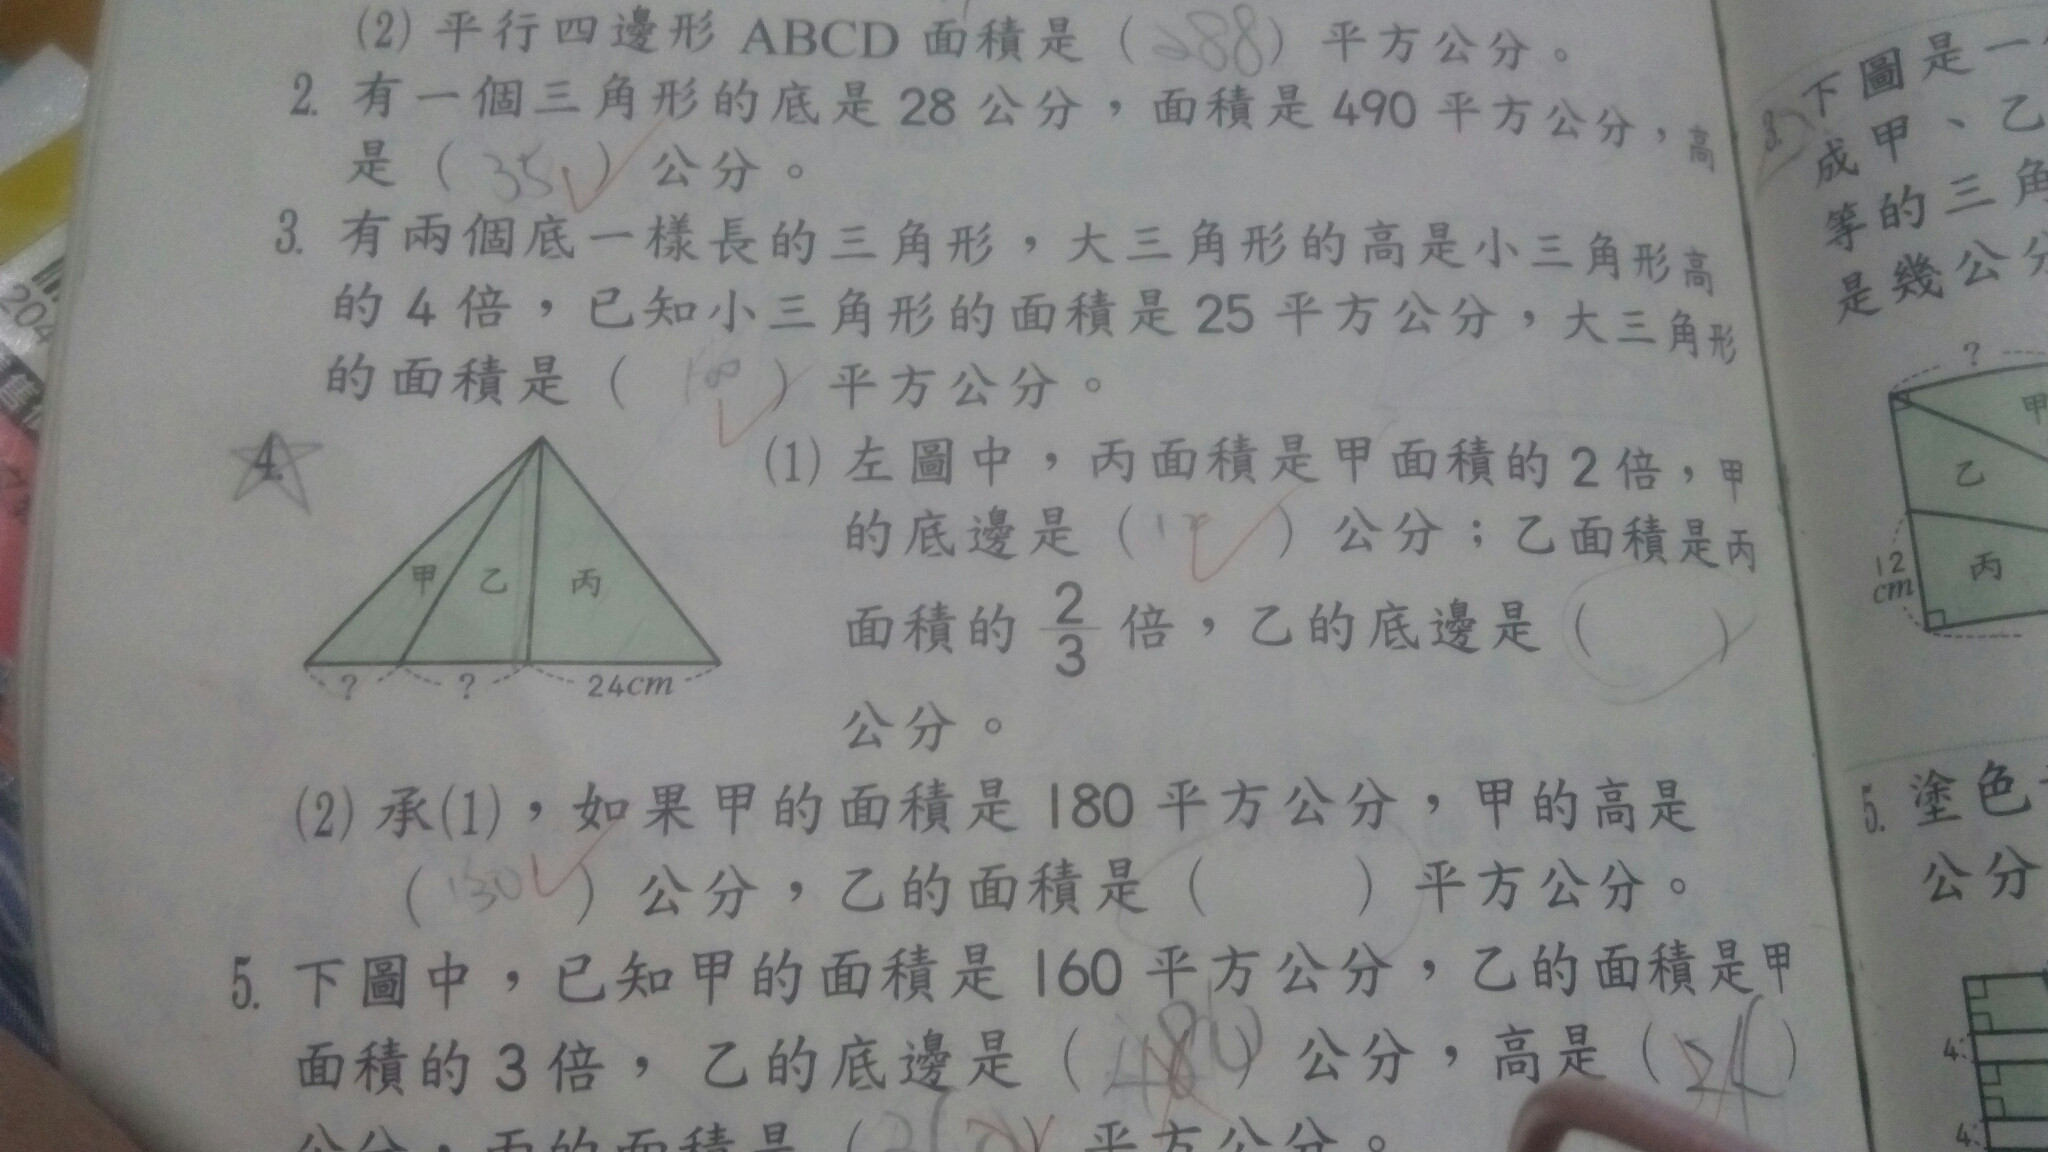 (2) 平行四邊形 ABCD 面積是 (288) 平方公分。
2. 有一個三角形的底是 28 公分，面積是 490 平方公分，高
是 (35) 公分。
3. 有兩個底一樣長的三角形，大三角形的高是小三角形高
的 4 倍，已知小三角形的面積是 25 平方公分，大三角形
的面積是 (100) 平方公分。
4.
甲 乙 丙
? ? 24cm
(1) 左圖中，丙面積是甲面積的 2 倍，甲
的底邊是 (12) 公分；乙面積是丙
面積的 2/3 倍，乙的底邊是 ( )
公分。
(2) 承(1)，如果甲的面積是 180 平方公分，甲的高是
(30) 公分，乙的面積是 ( ) 平方公分。
5. 下圖中，已知甲的面積是 160 平方公分，乙的面積是甲
面積的 3 倍，乙的底邊是 ( ) 公分，高是 ( )
公分，丙的面積是 ( ) 平方公分。
下圖是一
成甲、乙
等的三角
是幾公分
?
甲
乙
丙
12
cm
5. 塗色
公分
4
4